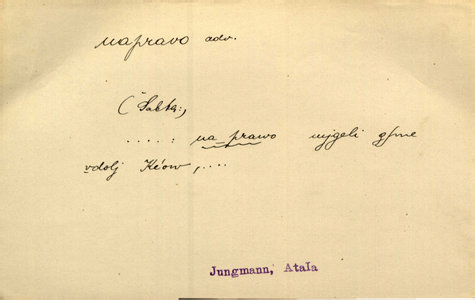 napravo adv.
(Šaktas,
.....: na prawo wygeli gsme
vdolj Kéow,....
Jungmann, Atala